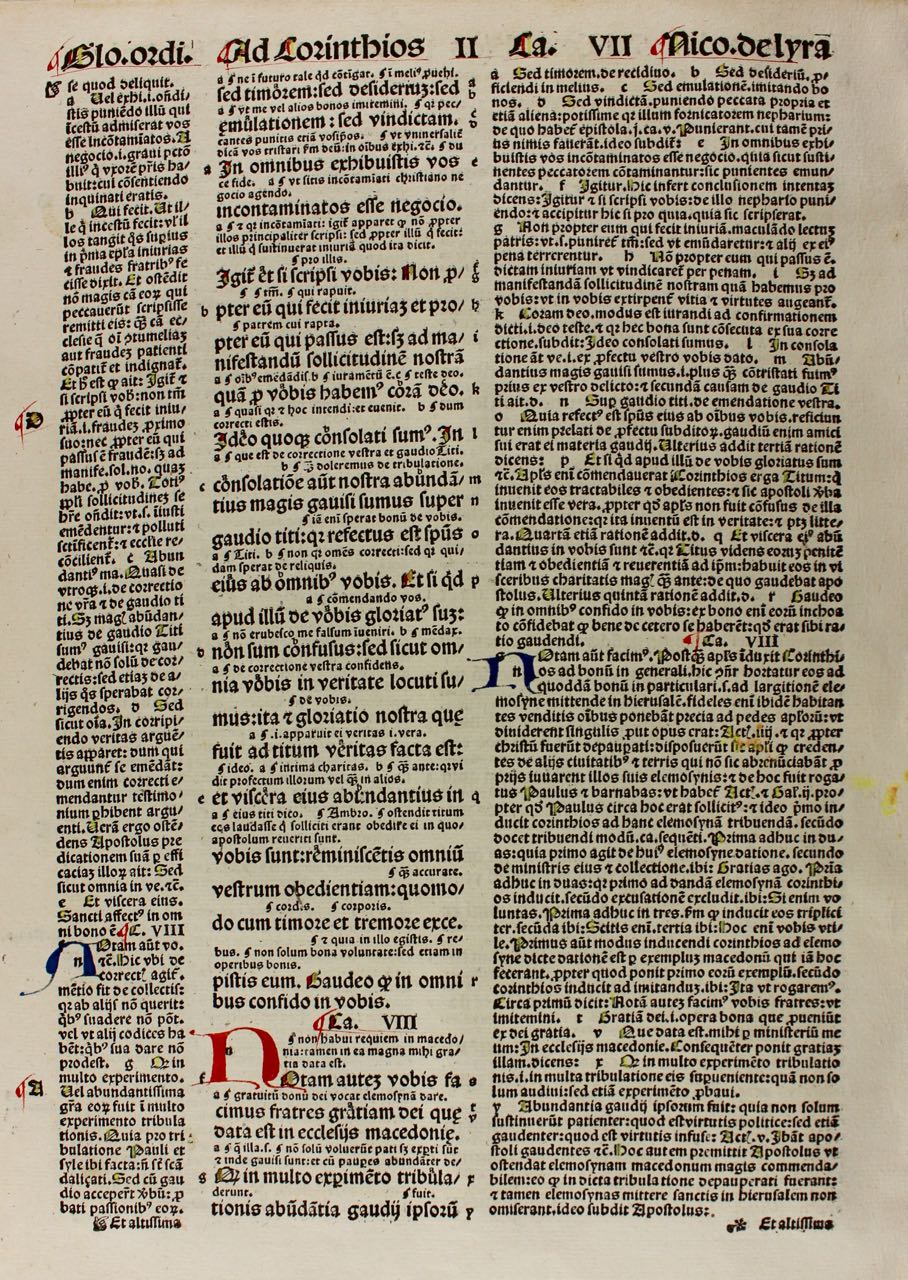 Glo.ordi. Ad Corinthios II Ca. VII Nico.de lyrā
se quod deliquit.
a Uel exhi.i.ondi/
stis puniēdo illū qui
īcestū admiserat vos
esse incōtamīatos. A
negocio.i.graui pctō
illiꝰ q̇ vxorē pr̄is ha/
buit:cui cōsentiendo
inquinati eratis.
b Qui fecit. Ut il/
le q̇ incestū fecit:vl̓ il
los tangit q̇s supius
in p̄ma epl̓a iniurias
⁊ fraudes fratribꝰ fe
cisse dixit. Et ostēdit
nō magis cā eoꝝ qui
peccauerūt scripsisse
remitti eis: q̄ꝫ cā ec/
clesie q̇ oī ↄtumeliaʒ
aut fraudeʒ patienti
cōpatiť et indignať.
Et h̓ est ꝙ ait: Igiť ⁊
si scripsi vob̓:non tm̄
ꝓpter eū q̇ fecit iniu/
D riā.i.fraudeʒ ꝓximo
suo:nec ꝓpter eū qui
passus ē fraudē:sʒ ad
manife.sol.no. quaʒ
habe. ꝓ vob̓. Totiꝰ
apl̓i sollicitudineʒ se
h̓re ondit:vt.s.iniusti
emēdentur:⁊ polluti
sctificenť:⁊ ecclie re/
cōcilienť. c Abun
dantiꝰ ma. Quasi de
vtroqʒ.i.de correctio
ne vr̄a ⁊ de gaudio ti
ti. Sʒ magꝭ abūdan/
tius de gaudio Titi
sumꝰ gauisi:qꝛ gau/
debat nō solū de cor/
rectis:sed etiaʒ de a/
lijs q̇s sperabat cor/
rigendos. d Sed
sicut oīa. In corripi/
endo veritas arguē/
tis apparet: dum qui
arguunť se emēdāt:
dum enim correcti e/
mendantur testimo/
nium ꝑhibent argu/
enti. Uerā ergo ostē/
dens Apostolus pre
dicationem suā ꝑ effi
caciaʒ illoꝝ ait: Sed
sicut omnia in ve.⁊c̄.
e Et viscera eius.
Sancti affectꝰ in om
ni bono ē. C. VIII
Notam aūt vo.
⁊c̄. Hic vbi de
correctꝭ agiť.
mētio fit de collectis:
qꝛ ab alijs nō querit:
q̇bꝰ suadere nō pōt.
vel vt alij codices ha
bēt:q̇bꝰ sua dare nō
prodest. g Qꝫ in
multo experimento.
A Uel abundantissima
gr̄a eoꝝ fuit ī multo
experimento tribula
tionis. Quia pro tri
bulatione Pauli et
syle ibi facta:ñ sē scā
daliçati. Sed cū gau
dio acceperť v̓bū:ꝓ
bati passionibꝰ eoꝝ.
Et altissima
a § ne ī futuro tale q̇d cōtīgať. § ī meliꝰ ꝓuehi.
sed timōrem: sed desideriuʒ:sed
a § vt me vel alios bonos imitemini. § qꝛ pec/
emūlationem : sed vindictam.
cantes punitis etiā vosip̄os. § vt vniuersalit̓
dicā vos tristari fm̄ deū:in oībus exhi.⁊c̄. § du
a In omnibus exhibuistis vos
ce fide. a § vt sitis incōtamīati christiano ne
gocio agendo.
incontaminatos esse negocio.
a § ⁊ qꝛ incōtamiati: igiť apparet ꝙ nō ꝓpter
illos principaliter scripsi: sed ꝓpter illū q̇ fecit:
et illū q̇ sustinuerat iniuriā quod ita dicit.
§ pro illis.
Igiť ēt si scripsi vobis: Non ꝓ/
§ tm̄. § qui rapuit.
b pter eū qui fecit iniuriaʒ et pro/ h
§ patrem cui rapta.
pter eū qui passus est:sʒ ad ma/ i
nifestandū sollicitudinē nostrā
a § oībꝰ emēdādis. b § iuramētū ē. c § teste deo.
quā ꝓ vobis habemꝰ cōrā dēo. k
a § quasi qꝛ ⁊ hoc intendi:et euenit. b § dum
correcti estis.
Idēo quoqʒ cōnsolati sumꝰ. In l
a § que est de correctione vestra et gaudio Titi.
b § doleremus de tribulatione.
c cōnsolatiōe aūt nostra abūndā/ m
tius magis gauisi sumus super n
§ iā enī sperat bonū de vobis.
gaudio titi:qꝛ refectus est sp̄us o
a § Titi. b § non qꝛ omēs correcti:sed qꝛ qui/
dam sperat de reliquis.
eiūs ab ōmnibꝰ vobis. Et si q̇d p
a § cōmendando vos.
apud illū de vōbis gloriatꝰ suʒ:
a § nō erubesco me falsum īueniri. b § mēdax.
d nōn sum cōnfusus:sed sicut om/
a § de correctione vestra confidens.
nia vōbis in veritate locuti su/
§ de vobis.
mus:ita ⁊ gloriatio nostra que
a § .i. apparuit ei veritas i.vera.
fuit ad titum vēritas facta est:
§ ideo. a § intima charitas. b § q̄ꝫ ante:qꝛ vi
dit profectum illorum vel q̄ꝫ in alios.
e et viscēra eius abūndantius in q
a § eius titi dico. § Ambro. § ostendit titum
eos laudasse q̇ solliciti erant obedire ei in quo/
apostolum reueriti sunt.
vobis sunt:rēminiscētis omniū
§ q̄ꝫ accurate.
vestrum obedientiam:quomo/
§ cordis. § corporis.
do cum timore et tremore exce.
§ ⁊ quia in illo egistis. § re/
bus. § non solum bona voluntate:sed etiam in
operibus bonis.
pistis eum. Gaudeo ꝙ in omni r
bus confido in vobis.
Ca. VIII
§ non habui requiem in macedo/
nia:tamen in ea magna mihi gra/
tia data est.
f Notam auteʒ vobis fa s
a § gratuitū donū dei vocat elemosynā dare.
cimus fratres grātiam dei que t
data est in ecclesijs macedonie. v
a § q̇ illa. § § nō solū voluerūt pati sʒ exꝑti sūt
⁊ inde gauisi sunt:et cū paupes abundāter de/
g Qꝫ in multo experimēto tribūla/ x
derunt. § fuit.
tionis abūdātia gaudij ipsorū y
a Sed timorem.de recidiuo. b Sed desideriū. ꝓ/
ficiendi in melius. c Sed emulationē.imitando bo
nos. d Sed vindictā.puniendo peccata propria et
etiā aliena:potissime qꝛ illum fornicatorem nepharium:
de quo habeť epistola.j.ca.v. Punierant.cui tamē pri/
us nimis fauerāt.ideo subdiť: e In omnibus exhi/
buistis vos incōtaminatos esse negocio.quia sicut susti/
nentes peccatorem cōtaminantur:sic punientes emun/
dantur. f Igitur. Hic infert conclusionem intentaʒ
dicens: Igitur ⁊ si scripsi vobis:de illo nephario puni/
endo:⁊ accipitur hic si pro quia.quia sic scripserat.
g Non propter eum qui fecit iniuriā.maculādo lectuʒ
patris:vt.s.punireť tm̄:sed vt emūdaretur:⁊ alij ex eiꝰ
pena terrerentur. h Nō ꝓpter eum qui passus ē.
dictam iniuriam vt vindicareť per penam. i Sʒ ad
manifestandā sollicitudinē nostram quā habemus pro
vobis:vt in vobis extirpenť vitia ⁊ virtutes augeanť.
k Coram deo.modus est iurandi ad confirmationem
dicti.i.deo teste.⁊ qꝛ hec bona sunt cōsecuta ex sua corre
ctione.subdit: Ideo consolati sumus. l In consola
tione āt ve.i.ex ꝓfectu vestro vobis dato. m Abū/
dantius magis gauisi sumus.i.plus q̄ꝫ cōtristati fuimꝰ
prius ex vestro delicto:⁊ secundā causam de gaudio Ti
ti ait.d. n Sup gaudio titi.de emendatione vestra.
o Quia refectꝰ est sp̄us eius ab oībus vobis.reficiun
tur enim prelati de ꝓfectu subditoꝝ.gaudiū enim amici
sui erat ei materia gaudij. Ulterius addit tertiā rationē
dicens: p Et si q̇d apud illū de vobis gloriatus sum
⁊c̄. Apl̓s enī cōmendauerat Corinthios erga Titum:q̇
inuenit eos tractabiles ⁊ obedientes:⁊ sic apostoli v̓ba
inuenit esse vera.ꝓpter qd̓ apl̓s non fuit cōfusus de illa
cōmendatione:qꝛ ita inuentū est in veritate:⁊ ptʒ litte/
ra. Quartā etiā rationē addit.d. q Et viscera eiꝰ abū
dantius in vobis sunt ⁊c̄.qꝛ Titus videns eorūʒ penitē
tiam ⁊ obedientiā ⁊ reuerentiā ad ip̄m:habuit eos in vi
sceribus charitatis magꝭ q̄ꝫ ante:de quo gaudebat apo
stolus. Ulterius quintā rationē addit.d. r Gaudeo
ꝙ in omnibꝰ confido in vobis:ex bono enī eorū inchoa
to cōfidebat ꝙ bene de cetero se haberēt:qd̓ erat sibi ra/
tio gaudendi. Ca. VIII
s Notam aūt facimꝰ. Postq̄ꝫ apl̓s īduxit Corinthi/
os ad bonū in generali.hic ↄn̄r hortatur eos ad
quoddā bonū in particulari.s.ad largitionē ele/
mosyne mittende in hierusalē.fideles enī ibidē habitan
tes venditis oībus ponebāt precia ad pedes apl̓orū:vt
diuiderent singulis ꝓut opus erat: Actꝭ.iiij.⁊ qꝛ ꝓpter
christū fuerūt depaupati:disposuerūt se apl̓i ꝙ creden/
tes de alijs ciuitatibꝰ ⁊ terris qui nō sic abrenūciabāt ꝓ
prijs iuuarent illos suis elemosynis:⁊ de hoc fuit roga/
tus Paulus ⁊ barnabas:vt habeť Actꝭ. ⁊ Gal.ij.pro/
pter qd̓ Paulus circa hoc erat sollicitꝰ:⁊ ideo p̄mo in/
ducit corinthios ad hanc elemosynā tribuendā.secūdo
docet tribuendi modū.ca.sequēti. Prima adhuc in du/
as:quia primo agit de huiꝰ elemosyne datione.secundo
de ministris eius ⁊ collectione.ibi: Gratias ago. Prima
adhuc in duas:qꝛ primo ad dandā elemosynā corinthi/
os inducit.secūdo excusationē excludit.ibi: Si enim vo
luntas. Prima adhuc in tres.fm̄ ꝙ inducit eos triplici
ter.secūda ibi: Scitis enī.tertia ibi: Hoc enī vobis vti/
le. Primus aūt modus inducendi corinthios ad elemo
syne dicte dationē est ꝑ exempluʒ macedonū qui iā hoc
fecerant.ꝓpter quod ponit primo eorū exemplū.secūdo
corinthios inducit ad imitanduʒ.ibi: Ita vt rogaremꝰ.
Circa primū dicit: Notā auteʒ facimꝰ vobis fratres:vt
imitemini. t Gratiā dei.i.opera bona que ꝓueniūt
ex dei gratia. v Que data est.mihi ꝑ ministeriū me
um: In ecclesijs macedonie. Consequēter ponit gratiaʒ
illam.dicens: x Qꝫ in multo experimēto tribulatio
nis.i.in multa tribulatione eis supueniente:quā non so
lum audiui:sed etiā experimēto ꝓbaui.
y Abundantia gaudij ipsorum fuit: quia non solum
sustinuerūt patienter:quod est virtutis politice:sed etiā
gaudenter:quod est virtutis infuse: Actꝭ.v. Ibāt apo/
stoli gaudentes ⁊c̄. Hoc autem premittit Apostolus vt
ostendat elemosynam macedonum magis commenda/
bilem:eo ꝙ in dicta tribulatione depauperati fuerant:
⁊ tamen elemosynas mittere sanctis in hierusalem non
omiserant.ideo subdit Apostolus:
Et altissima